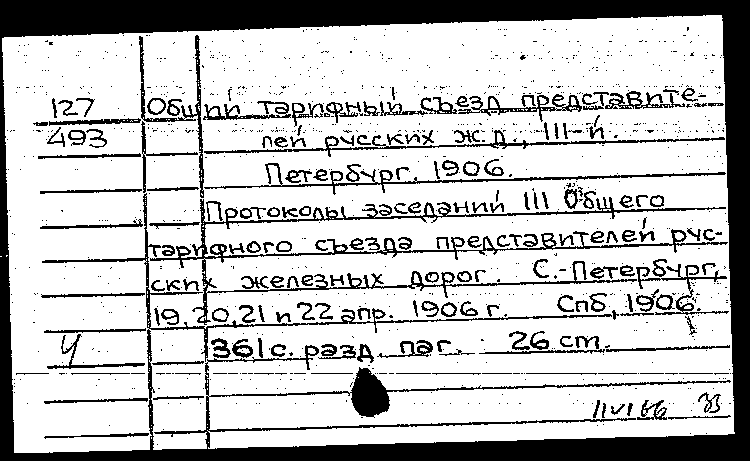 127 Общий тарифный съезд представите-
493 лей русских ж.д., III-й.
Петербург. 1906.
Протоколы заседаний III Общего
тарифного съезда представителей рус-
ских железных дорог. С.-Петербург,
19, 20, 21 и 22 апр. 1906 г. Спб, 1906.
Ч 361 с. разд. паг. 26 cm.
11 VI 66